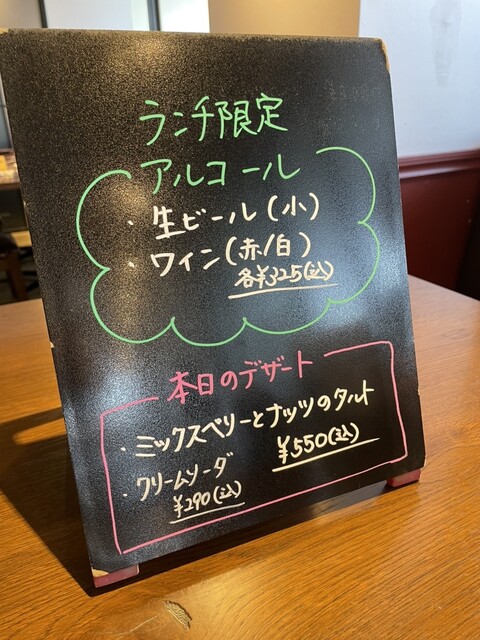 ランチ限定
アルコール
・生ビール(小)
・ワイン(赤/白)
各¥325(込)
本日のデザート
・ミックスベリーとナッツのタルト
¥550(込)
・クリームソーダ
¥290(込)